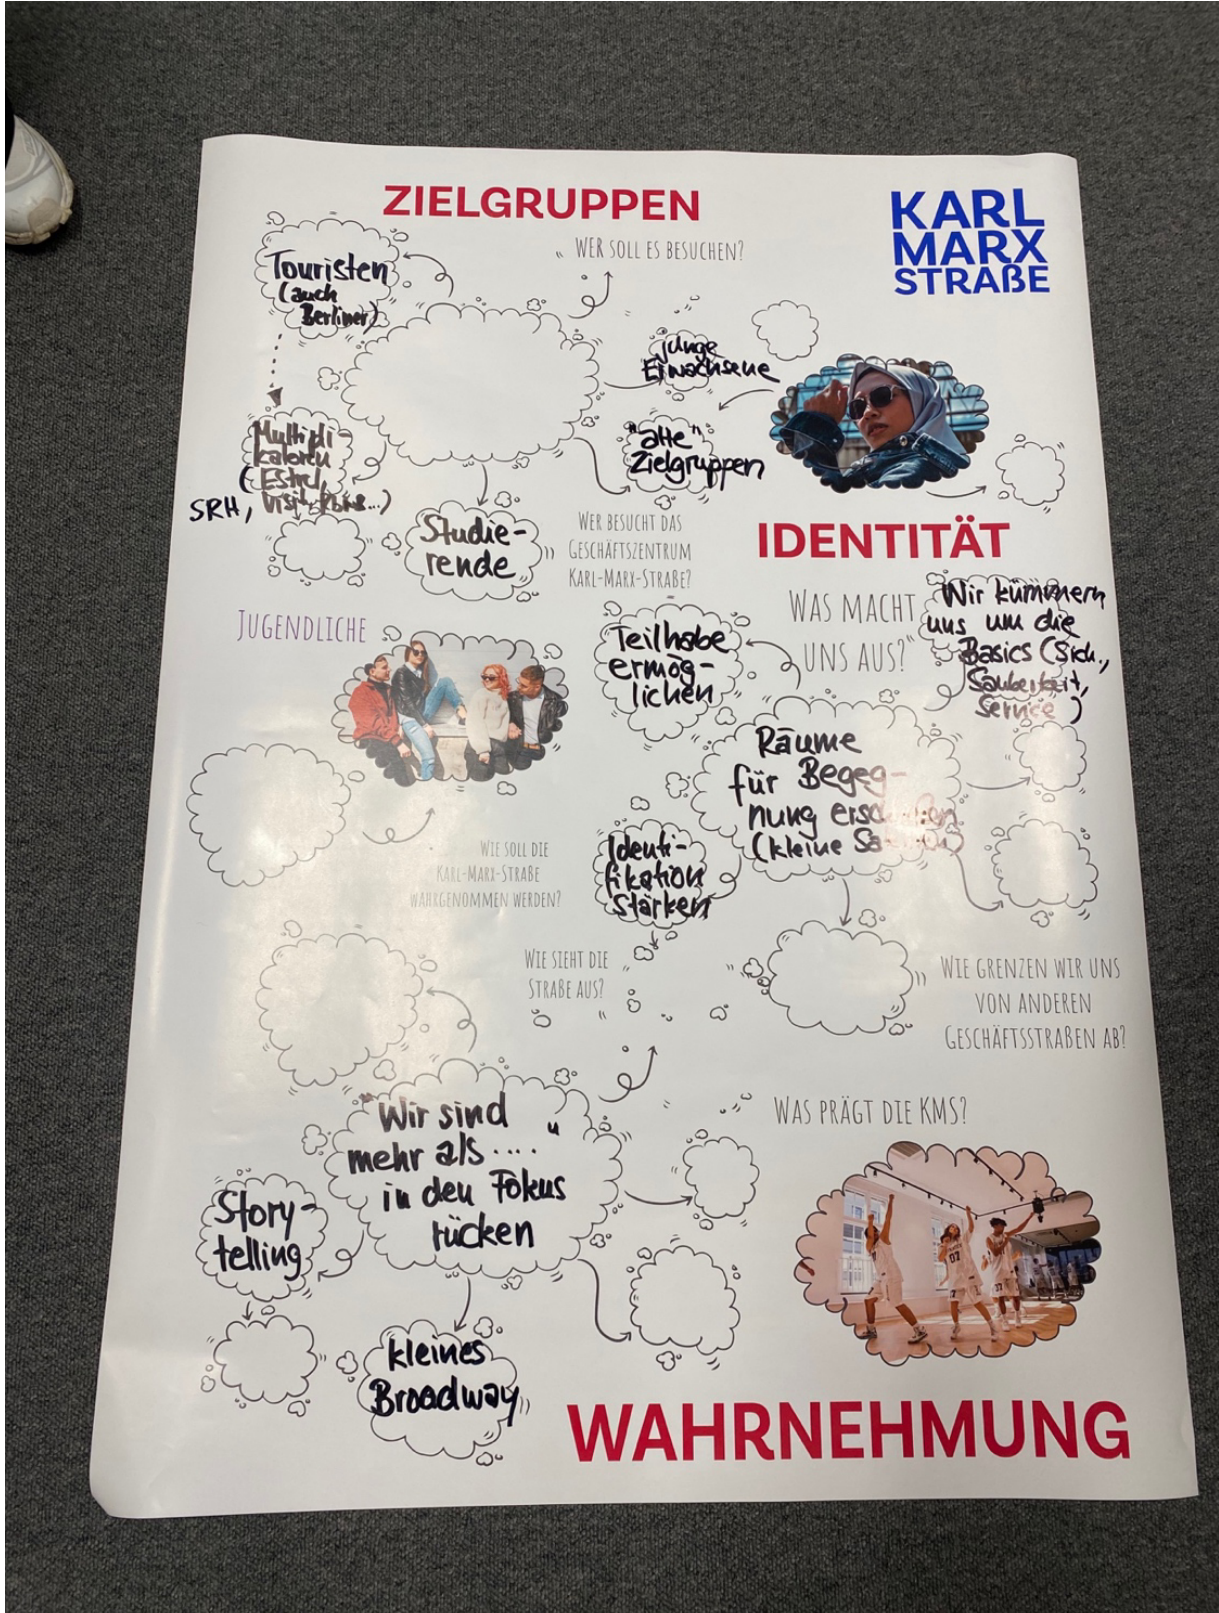 ZIELGRUPPEN
KARL
MARX
STRAßE
WER SOLL ES BESUCHEN?
Touristen
(auch
Berliner)
junge
Erwachsene
"alte"
Zielgruppen
Multipli-
katoren
(Estrel,
SRH, Visit
Studie-
rende
WER BESUCHT DAS
GESCHÄFTSZENTRUM
KARL-MARX-STRAßE?
JUGENDLICHE
IDENTITÄT
WAS MACHT
UNS AUS?
Wir kümmern
uns um die
Basics (Sich.,
Sauberkeit,
Service)
Teilhabe
ermög-
lichen
Räume
für Begeg-
nung erschaffen
(kleine
Identi-
fikation
stärken
WIE SOLL DIE
KARL-MARX-STRAßE
WAHRGENOMMEN WERDEN?
WIE SIEHT DIE
STRAßE AUS?
WIE GRENZEN WIR UNS
VON ANDEREN
GESCHÄFTSSTRAßEN AB?
WAS PRÄGT DIE KMS?
"Wir sind
mehr als ...."
in den Fokus
rücken
Story-
telling
kleines
Broadway
07
WAHRNEHMUNG